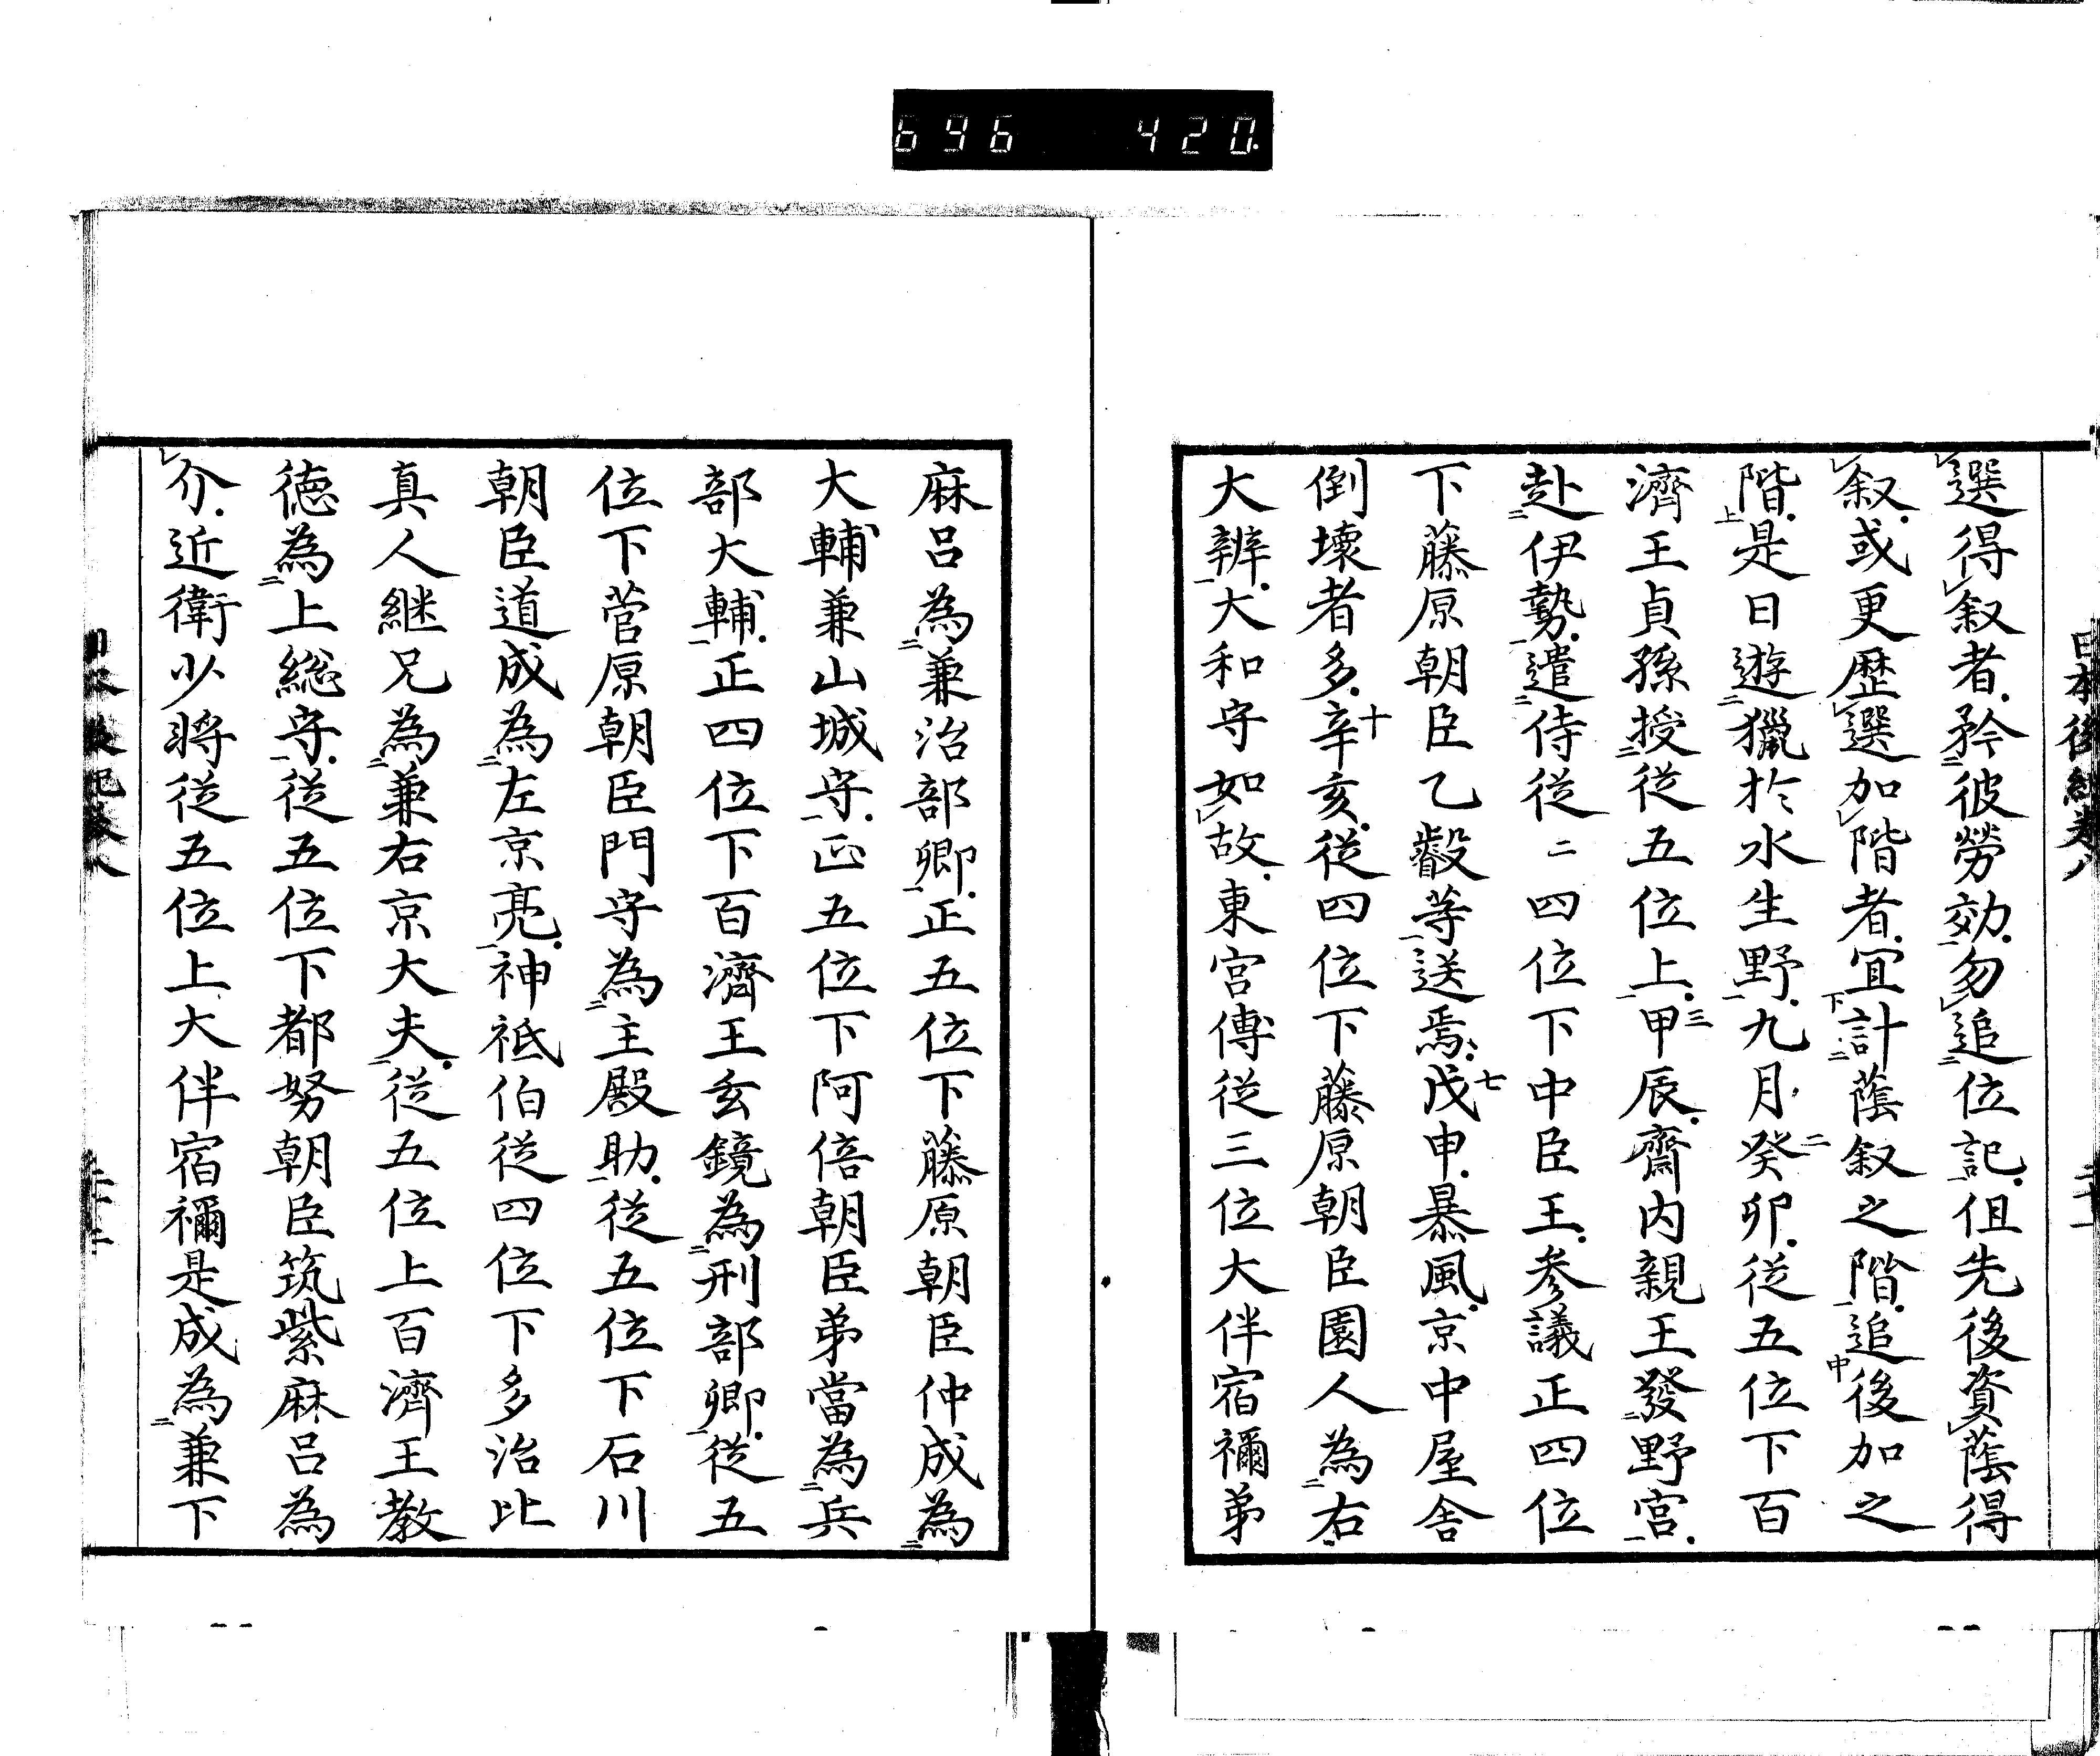 696 420
日本後紀卷八
選得叙者矜彼勞効勿追位記但先後資蔭得
叙或更歴選加階者宜計蔭叙之階追後加之
階是日遊獵於水生野九月癸卯從五位下百
濟王貞孫授從五位上甲辰齋内親王發野宮
赴伊勢遣侍從四位下中臣王參議正四位
下藤原朝臣乙叡等送焉戊申暴風京中屋舎
倒壞者多辛亥從四位下藤原朝臣園人為右
大辨大和守如故東宮傅從三位大伴宿禰弟
麻呂為兼治部卿正五位下藤原朝臣仲成為
大輔兼山城守正五位下阿倍朝臣弟當為兵
部大輔正四位下百濟王玄鏡為刑部卿從五
位下菅原朝臣門守為主殿助從五位下石川
朝臣道成為左京亮神祇伯從四位下多治比
真人継兄為兼右京大夫從五位上百濟王教
徳為上総守從五位下都努朝臣筑紫麻呂為
介近衛少將從五位上大伴宿禰是成為兼下